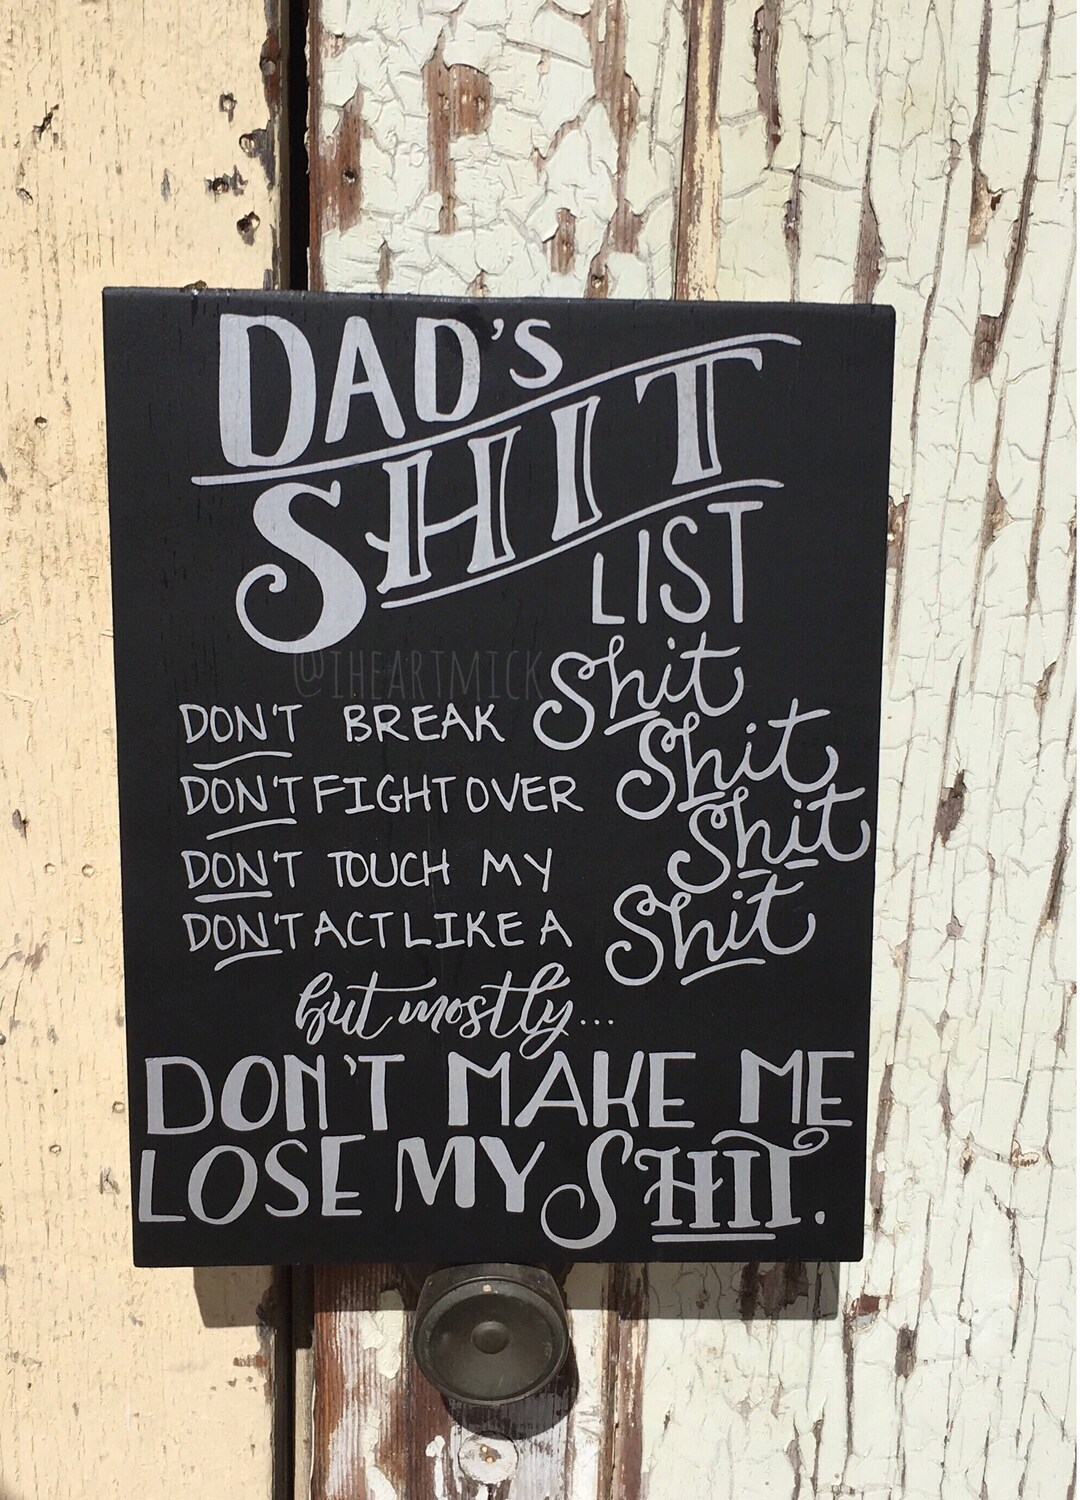 DAD'S
SHIT
LIST
@IHEARTMICK
DON'T BREAK Shit
DON'T FIGHT OVER Shit
DON'T TOUCH MY Shit
DON'T ACT LIKE A Shit
but mostly...
DON'T MAKE ME
LOSE MY SHIT.